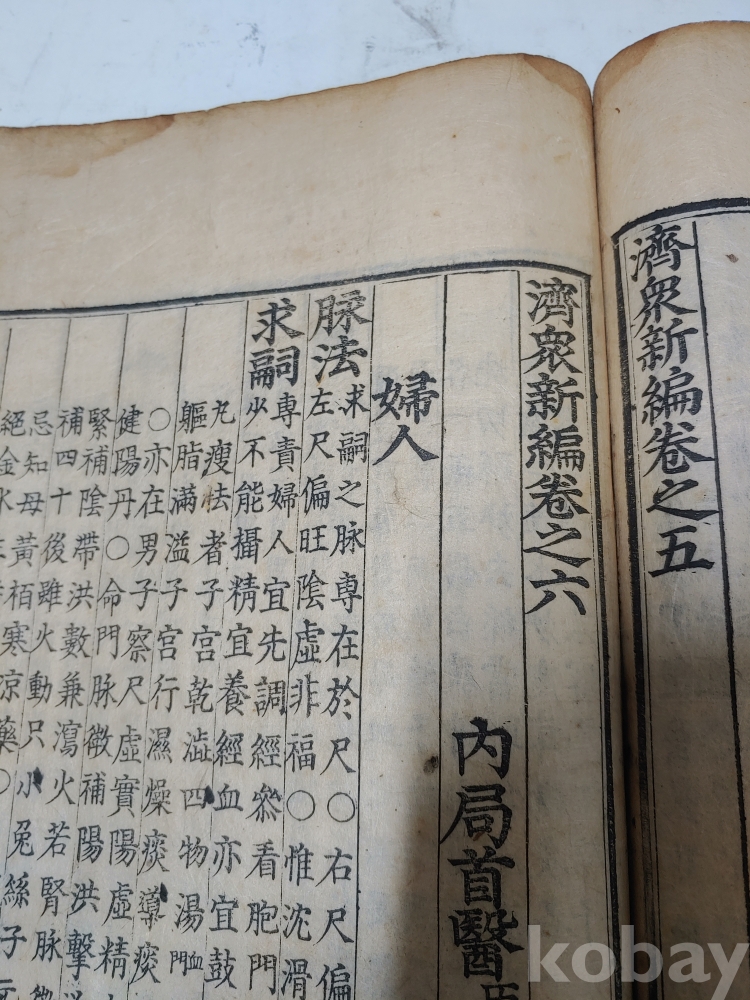 濟衆新編卷之五
濟衆新編卷之六
內局首醫
婦人
脈法
求嗣之脉專在於尺○右尺偏
左尺偏旺陰虛非福○惟沈滑
求嗣
專責婦人宜先調經叅看胞門
少不能攝精宜養經血亦宜鼓
丸瘦怯者子宮乾澁四物湯
軀脂滿溢子宮行濕燥痰導痰
○亦在男子察尺虛實陽虛精
健陽丹○命門脉微補陽洪擊
緊補陰帶洪數兼瀉火若腎脉微
補四十後雖火動只小
忌知母黃栢寒凉藥○
兔絲子
絕金水
kobay